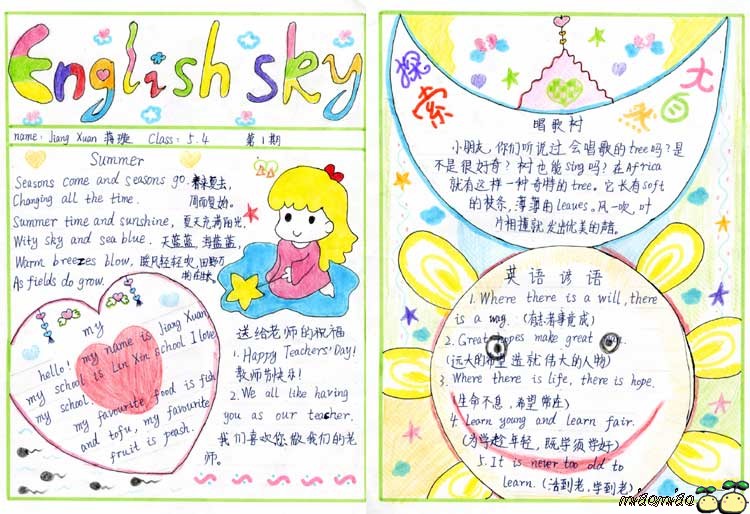 English sky
name: Jiang Xuan 蒋璇 Class: 5.4 第1期
Summer
Seasons come and seasons go. 春来夏去,
Changing all the time. 周而复始.
Summer time and sunshine, 夏天充满阳光,
Wity sky and sea blue. 天蓝蓝,海蓝蓝,
Warm breezes blow, 暖风轻轻吹,
As fields do grow.
my
hello! my name is Jiang Xuan
my school is Lin Xin school I love
my school.
my favourite food is fish
and tofu, my favourite
fruit is peash.
送给老师的祝福
1. Happy Teachers' Day!
教师节快乐!
2. We all like having
you as our teacher.
我们喜欢您做我们的老
师。
探索
大自
唱歌树
小朋友,你们听说过会唱歌的tree吗?是
不是很好奇?树也能sing吗?在Africa
就有这样一种奇特的tree。它长有soft
的枝条,薄薄的leaves。风一吹,叶
片相撞就发出优美的
英语谚语
1. Where there is a will, there
is a way. (有志者事竟成)
2. Great hopes make great
(远大的希望造就伟大的人物)
3. Where there is life, there is hope.
(生命不息,希望常在)
4 Learn young and learn fair.
(为学趁年轻,既学须学好)
5. It is never too old to
learn. (活到老,学到老)
miaomiao